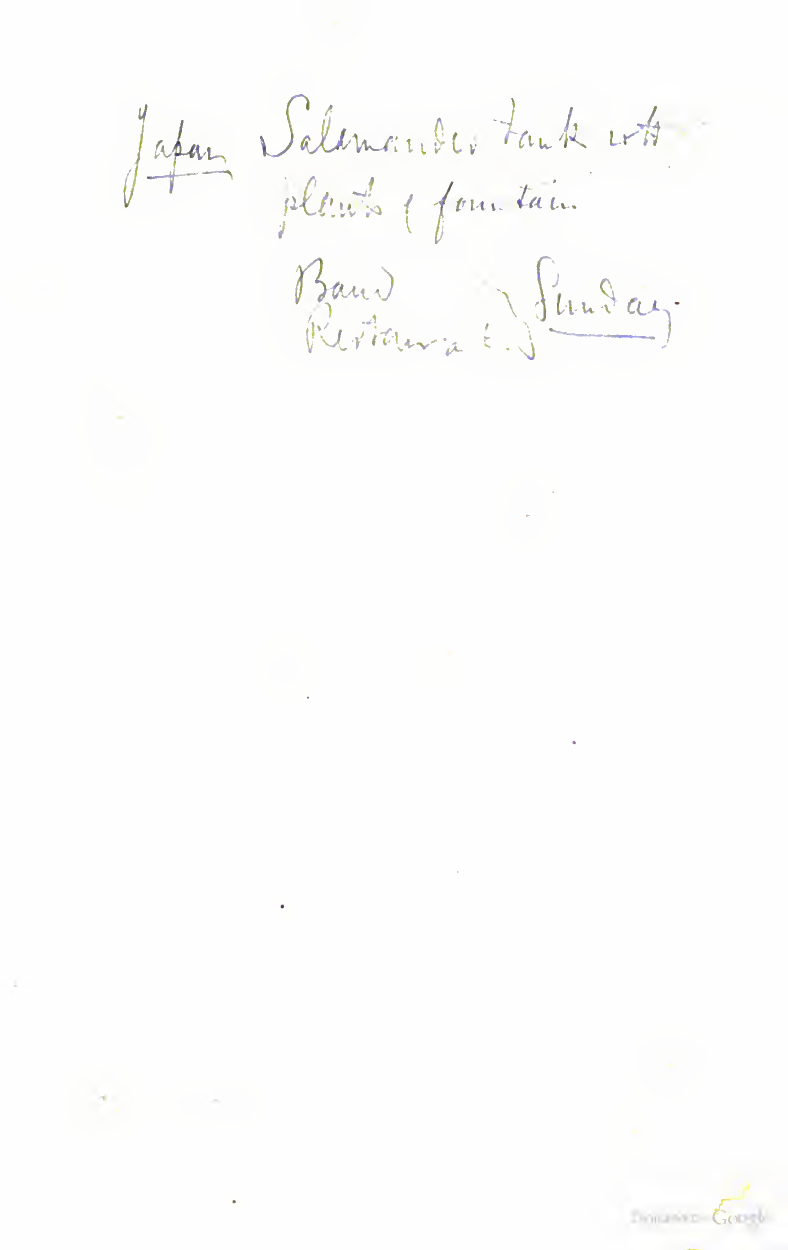 Japan Salamander tank with
plants & fountain
Band
Restaurant } Sunday
Digitized by Google